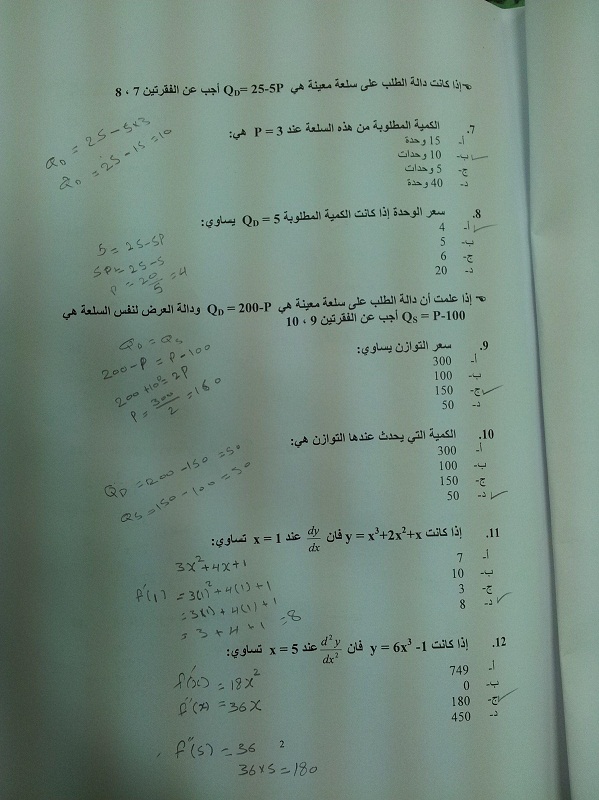 إذا كانت دالة الطلب على سلعة معينة هي QD= 25-5P أجب عن الفقرتين 7 ، 8
7. الكمية المطلوبة من هذه السلعة عند P = 3 هي:
أ- 15 وحدة
ب- 10 وحدات
ج- 5 وحدات
د- 40 وحدة
QD = 25 - 5x3
QD = 25 - 15 = 10
8. سعر الوحدة إذا كانت الكمية المطلوبة QD = 5 يساوي:
أ- 4
ب- 5
ج- 6
د- 20
5 = 25-5P
5P = 25-5
P = 20/5 = 4
إذا علمت أن دالة الطلب على سلعة معينة هي QD = 200-P ودالة العرض لنفس السلعة هي
QS = P-100 أجب عن الفقرتين 9 ، 10
9. سعر التوازن يساوي:
أ- 300
ب- 100
ج- 150
د- 50
QD = QS
200-P = P-100
200+100 = 2P
P = 300/2 = 150
10. الكمية التي يحدث عندها التوازن هي:
أ- 300
ب- 100
ج- 150
د- 50
QD = 200 - 150 = 50
QS = 150 - 100 = 50
11. إذا كانت y = x³+2x²+x فان dy/dx عند x = 1 تساوي:
أ- 7
ب- 10
ج- 3
د- 8
3x²+4x+1
f'(1) = 3(1)²+4(1)+1
= 3(1)+4(1)+1
= 3+4+1 = 8
12. إذا كانت y = 6x³ -1 فان d²y/dx² عند x = 5 تساوي:
أ- 749
ب- 0
ج- 180
د- 450
f'(x) = 18x²
f''(x) = 36x
f''(5) = 36
36x5 = 180